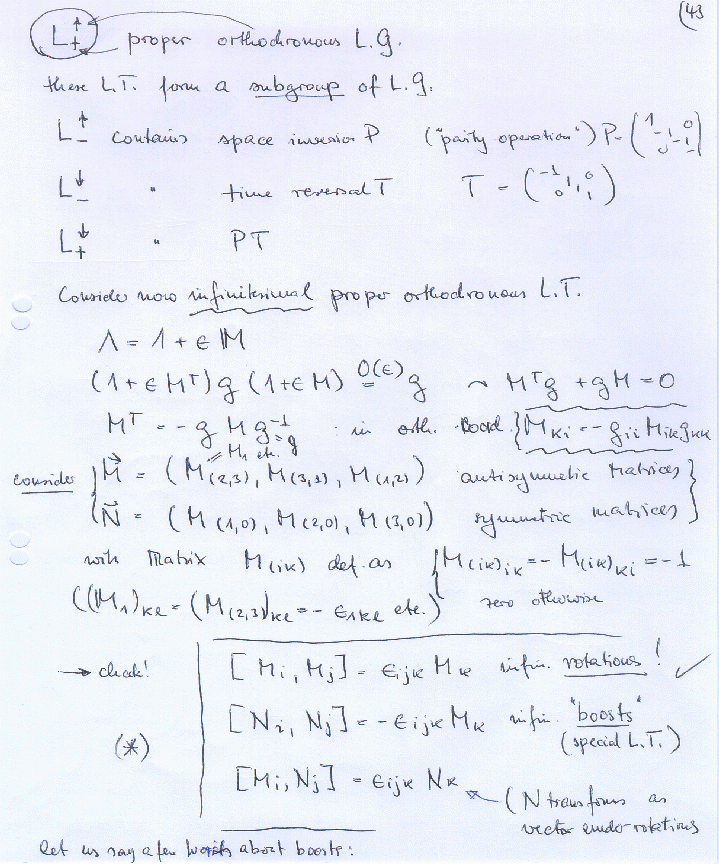 (43
L↑+ proper orthochronous L.G.
these L.T. form a subgroup of L.G.
L↑- contains space inversion P ("parity operation") P = (1 -1 -1 -1 0 0)
L↓- " time reversal T T = (-1 1 1 1 0 0)
L↓+ " PT
Consider now infinitesimal proper orthochronous L.T.
Λ = 1 + ϵ M
(1 + ϵ Mᵀ) g (1 + ϵ M) O(ϵ) = g ~ Mᵀg + gM = 0
Mᵀ = - g M g⁻¹ : in orth. coord. { M_Ki = - g_ii M_iK g_KK
= g
= M₁ etc.
consider { M⃗ = (M(2,3), M(3,1), M(1,2)) antisymmetric matrices }
{ N⃗ = (M(1,0), M(2,0), M(3,0)) symmetric matrices }
with Matrix M(iK) def. as { M(iK)_iK = - M(iK)_Ki = -1
((M₁)_Kℓ = (M(2,3))_Kℓ = - ϵ_1Kℓ etc.) zero otherwise
→ check! [M_i, M_j] = ϵ_ijK M_K infin. rotations! ✓
(*) [N_i, N_j] = - ϵ_ijK M_K infin. "boosts"
(special L.T.)
[M_i, N_j] = ϵ_ijK N_K
← (N transforms as
vector under rotations
let us say a few words about boosts: